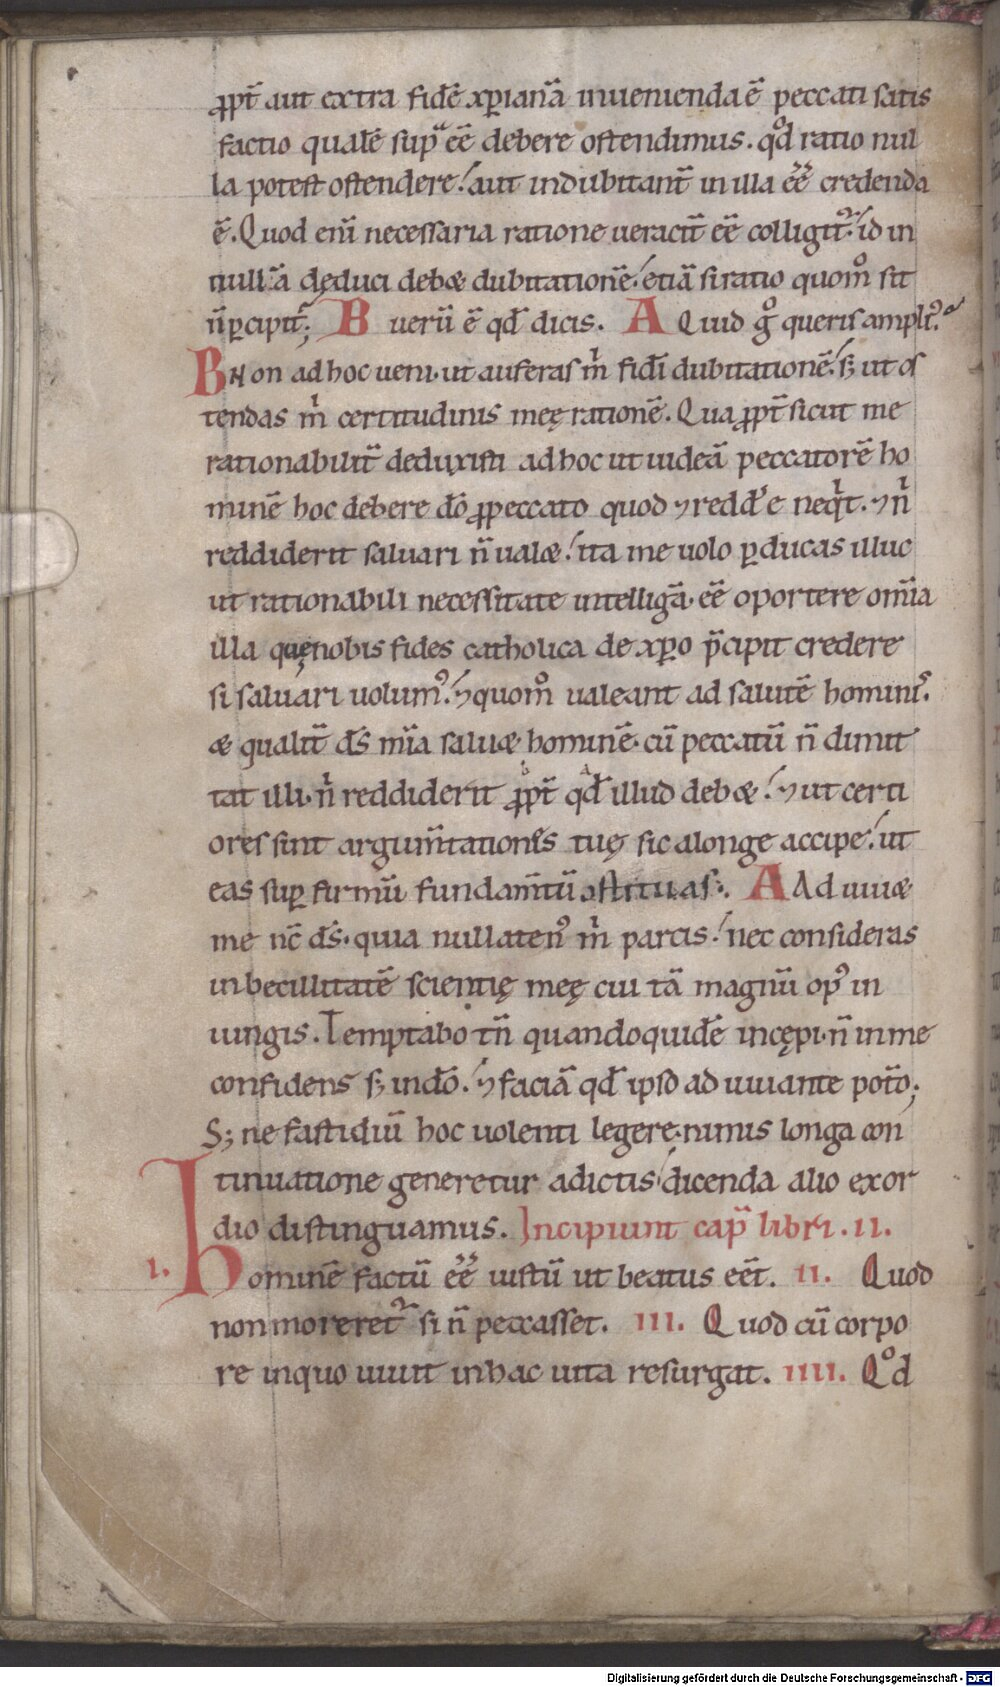 ꝓpt̄ aut extra fidē xp̄ianā inuenienda ē peccati satis
factio qualē sup̄ ēē debere ostendimus. qd̊ ratio nul
la potest ostendere. aut indubitant̄ in illa ēē credenda
ē. Quod eni̅ necessaria ratione ueracit̄ ēē colligit᷑. id in
null̄a dęduci debæ dubitationē. etiā si ratio quom̊ sit
n̄ ꝑcipit᷑; B ueru̅ ē qd̄ dicis. A Quid g̊ queris ampli⁹.
B Non ad hoc ueni. ut auferas m̍ fidei̅ dubitationē. sꝫ ut os
tendas m̍ certitudinis meę rationē. Qua ꝓpt̄ sicut me
rationabilit̄ deduxisti ad hoc ut uideā peccatorē ho
minē hoc debere dō ꝓ peccato quod ⁊ redd̄e neq̍t. ⁊ n̍
reddiderit saluari n̄ ualæ. ita me uolo ꝑducas illuc
ut rationabili necessitate intelligā. ēē oportere om̄ia
illa quę nobis fides catholica de xp̄o p̄cipit credere
si saluari uolum⁹. ⁊ quom̊ ualeant ad salutē homini⁹.
æ qualit̄ ds̄ mi̅a saluæ hominē. cū peccatū n̄ dimit
tat illi. n̍ reddiderit ꝓpt̄ qd̄ illud debæ. ⁊ ut certi
ores sint argum̄tationes tuę sic alonge accipe. ut
eas suꝑ firmū fundam̄tū ꝯstituas. A Ad iuuæ
me nc̄ ds̄. quia nullaten⁹ m̍ parcis. nec consideras
inbecillitatē scientię meę cui tā magnū op⁹ in
iungis. Temptabo tn̄ quandoquidē incępi. n̄ in me
confidens sꝫ in dō. ⁊ faciā qd̄ ipso adiuuante pot̄o;
S; ne fastidiū hoc uolenti legere. nimis longa con
tinuatione generetur adictis dicenda alio exor
dio distinguamus. Incipiunt cap̄ libri .II.
I. hominē factū ēē iustū ut beatus eēt. II. Quod
non moreret᷑ si n̄ peccasset. III. Quod cū corpo
re in quo uiuit in hac uita resurgat. IIII. Qd̊
Digitalisierung gefördert durch die Deutsche Forschungsgemeinschaft - DFG